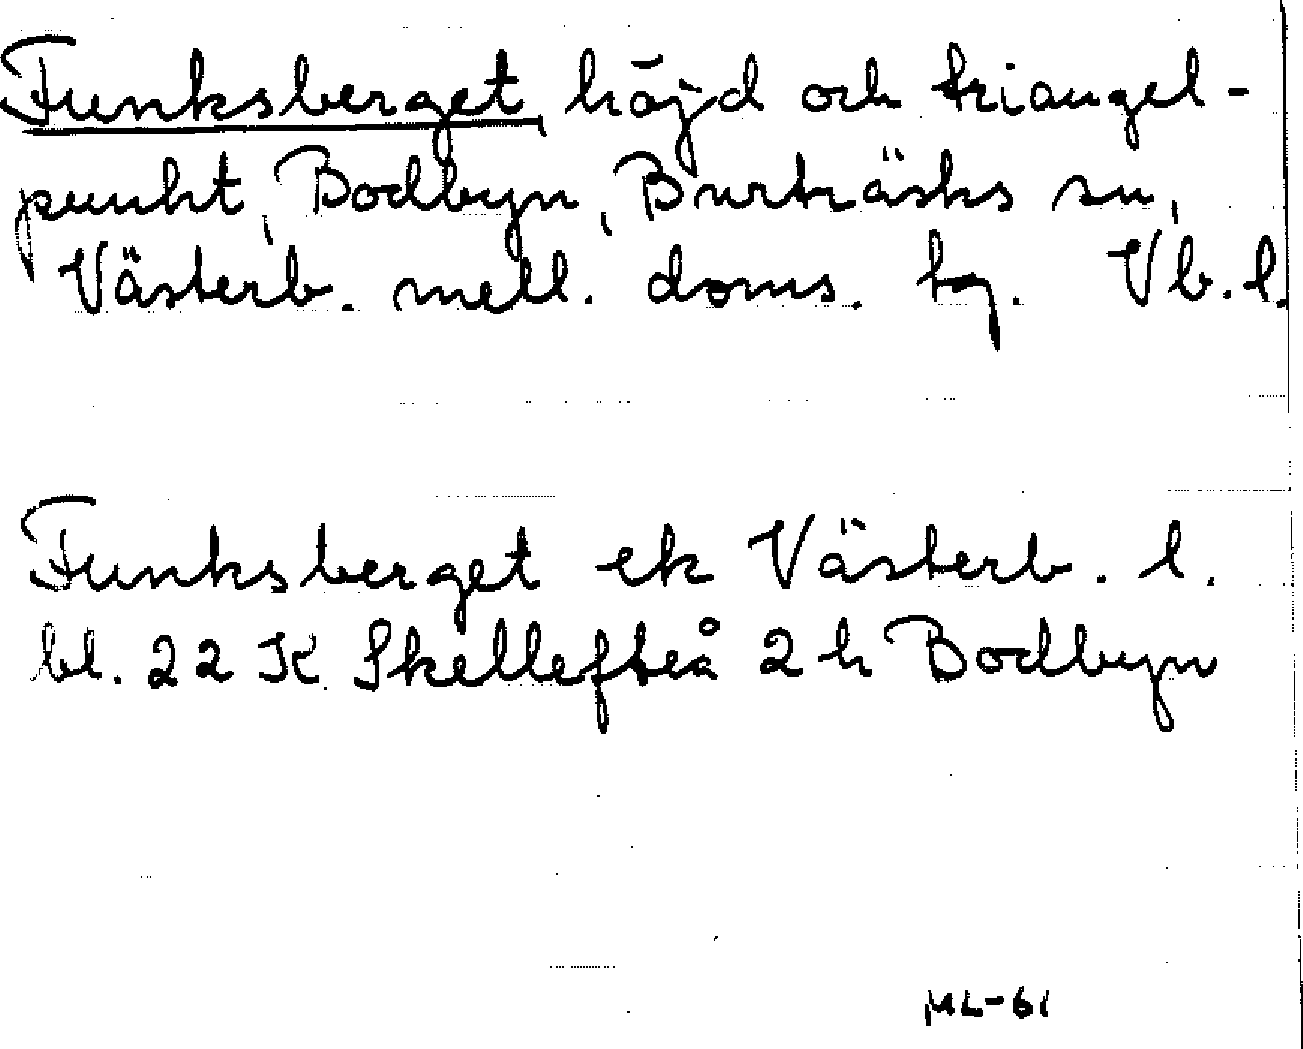 Funksberget, höjd och triangel-
punkt, Bodbyn, Burträsks sn,
Västerb. mell. doms. tg. Vb.l.
Funksberget ek Västerb. l.
bl. 22 K Skellefteå 2 h Bodbyn
ML-61